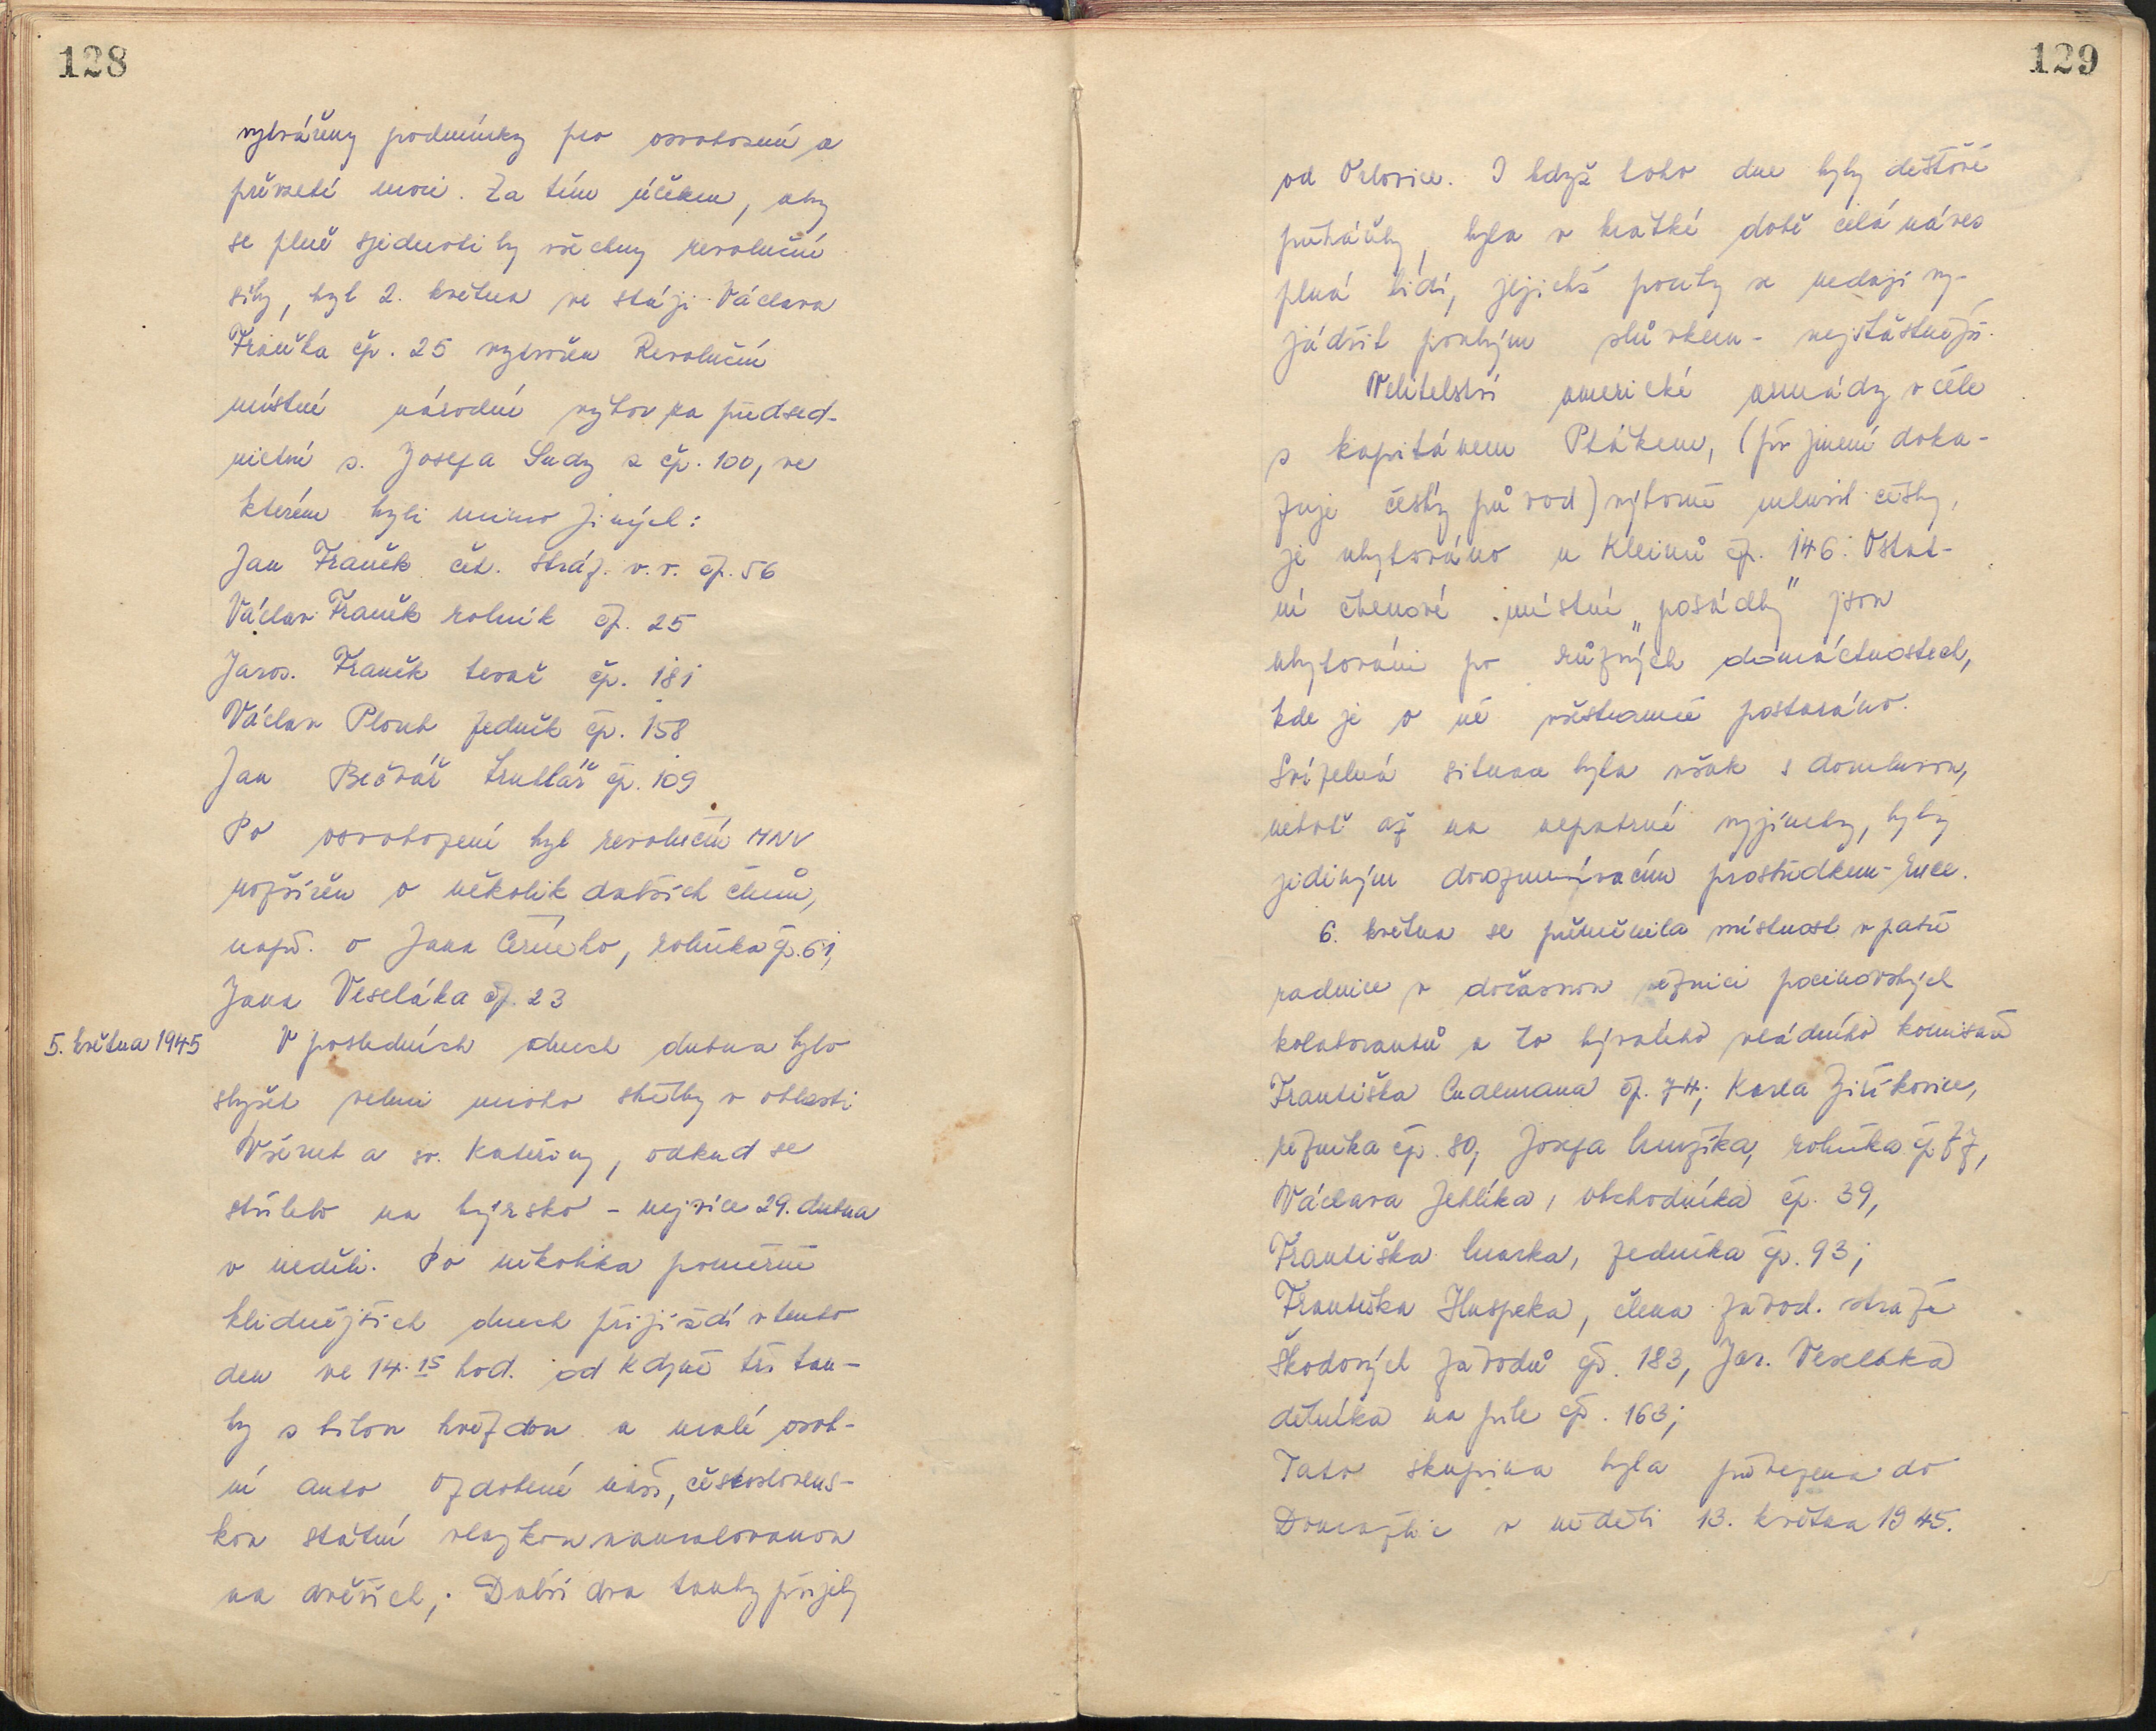 128
vytvářeny podmínky pro osvobození a
převzetí moci. Za tím účelem, aby
se plně sjednotily všechny revoluční
síly, byl 2. května ve stáji Václava
Fraňka čp. 25 vytvořen Revoluční
místní národní výbor za předsed-
nictví s. Josefa Sudy z čp. 100, ve
kterém byli mimo jiných:
Jan Franěk čet. stráž. v.v. čp. 56
Václav Franěk rolník čp. 25
Jaros. Franěk tesař čp. 181
Václav Ploub zedník čp. 158
Jan Bečvář truhlář čp. 109
Po osvobození byl revoluční MNV
rozšířen o několik dalších členů,
např. o Jana Černého, rolníka čp. 61,
Jana Veseláka čp. 23
5. května 1945 V posledních dnech dubna bylo
slyšet velmi mnoho střelby v oblasti
Všerub a sv. Kateřiny, odkud se
střílelo na Nýrsko - nejvíce 29. dubna
v neděli. Po několika poměrně
klidnějších dnech přijíždí v tento
den ve 14.15 hod. od Kdyně tři tan-
ky s bílou hvězdou a malé osob-
ní auto ozdobené naší, českosloven-
kou státní vlajkou namalovanou
na dveřích; Další dva tanky přijely
129
od Orlovic. I když toho dne byly dešťové
přeháňky, byla v krátké době celá náves
plná lidí, jejichž pocity se nedají vy-
jádřit pouhým slůvkem - nejšťastnější.
Velitelství americké armády v čele
s kapitánem Ptákem, (příjmení doka-
zuje český původ) výborně mluvil česky,
je ubytováno u Kleinů čp. 146. Ostat-
ní členové místní „posádky" jsou
ubytováni po různých domácnostech,
kde je o ně všestranně postaráno.
Svízelná situace byla však s domluvou,
neboť až na nepatrné vyjímky, byly
jediným dorozumívacím prostředkem - ruce.
6. května se přeměnila místnost v patře
radnice v dočasnou věznici pocinovských
kolaborantů a to bývalého vládního komisaře
Františka Cudlmana čp. 74; Karla Jiříkovice,
řezníka čp. 80, Josefa Muzika, rolníka čp 77,
Václava Jehlíka, obchodníka čp. 39,
Františka Marka, zedníka čp. 93;
Františka Huspeka, člena závod. stráže
Škodových závodů čp. 183, Jar. Veseláka
dělníka na pile čp. 163;
Tato skupina byla převezena do
Domažlic v neděli 13. května 1945.